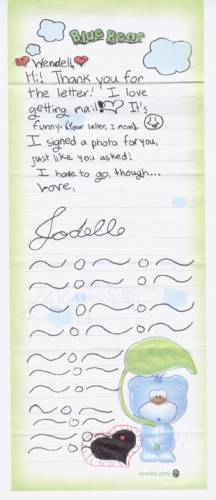 Blue Bear
Wendell,
Hi! Thank you for
the letter! I love
getting mail! It's
funny. (Your letter, I mean).
I signed a photo for you,
just like you asked!
I have to go, though...
Love,
Jodelle
morning glory